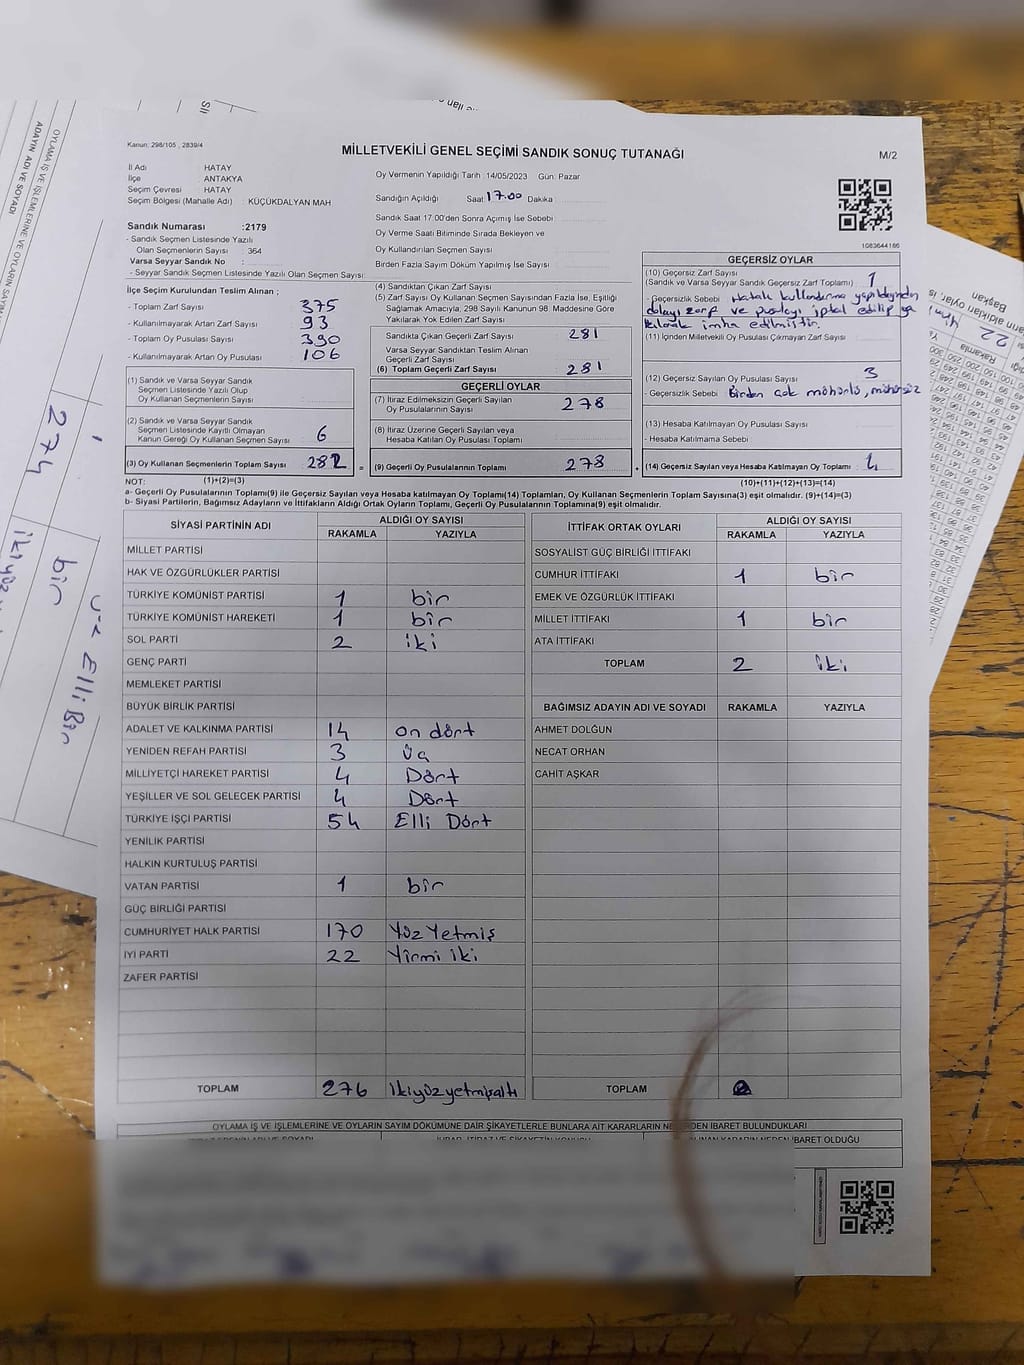 Kanun: 298/105 , 2839/4
MİLLETVEKİLİ GENEL SEÇİMİ SANDIK SONUÇ TUTANAĞI
M/2
İl Adı : HATAY
İlçe : ANTAKYA
Seçim Çevresi : HATAY
Seçim Bölgesi (Mahalle Adı) : KÜÇÜKDALYAN MAH
Sandık Numarası :2179
- Sandık Seçmen Listesinde Yazılı
Olan Seçmenlerin Sayısı : 364
Varsa Seyyar Sandık No :
- Seyyar Sandık Seçmen Listesinde Yazılı Olan Seçmen Sayısı:
Oy Vermenin Yapıldığı Tarih :14/05/2023 Gün: Pazar
Sandığın Açıldığı Saat: 17.00 Dakika :
Sandık Saat 17.00'den Sonra Açılmış İse Sebebi :
Oy Verme Saati Bitiminde Sırada Bekleyen ve
Oy Kullandırılan Seçmen Sayısı :
Birden Fazla Sayım Döküm Yapılmış İse Sayısı :
1083644186
İlçe Seçim Kurulundan Teslim Alınan ;
- Toplam Zarf Sayısı : 375
- Kullanılmayarak Artan Zarf Sayısı : 93
- Toplam Oy Pusulası Sayısı : 390
- Kullanılmayarak Artan Oy Pusulası : 106
(1) Sandık ve Varsa Seyyar Sandık
Seçmen Listesinde Yazılı Olup
Oy Kullanan Seçmenlerin Sayısı :
(2) Sandık ve Varsa Seyyar Sandık
Seçmen Listesinde Kayıtlı Olmayan
Kanun Gereği Oy Kullanan Seçmen Sayısı : 6
(3) Oy Kullanan Seçmenlerin Toplam Sayısı : 282
(4) Sandıktan Çıkan Zarf Sayısı :
(5) Zarf Sayısı Oy Kullanan Seçmen Sayısından Fazla İse, Eşitliği
Sağlamak Amacıyla, 298 Sayılı Kanunun 98. Maddesine Göre
Yakılarak Yok Edilen Zarf Sayısı :
Sandıkta Çıkan Geçerli Zarf Sayısı : 281
Varsa Seyyar Sandıktan Teslim Alınan
Geçerli Zarf Sayısı :
(6) Toplam Geçerli Zarf Sayısı : 281
GEÇERLİ OYLAR
(7) İtiraz Edilmeksizin Geçerli Sayılan
Oy Pusulalarının Sayısı : 278
(8) İtiraz Üzerine Geçerli Sayılan veya
Hesaba Katılan Oy Pusulası Toplamı :
(9) Geçerli Oy Pusulalarının Toplamı : 278
GEÇERSİZ OYLAR
(10) Geçersiz Zarf Sayısı
(Sandık ve Varsa Seyyar Sandık Geçersiz Zarf Toplamı) : 1
- Geçersizlik Sebebi : Hatalı kullandırma yapıldığından
dolayı zarf ve pusulayı iptal edilip ya
kılarak imha edilmiştir.
(11) İçinden Milletvekili Oy Pusulası Çıkmayan Zarf Sayısı :
(12) Geçersiz Sayılan Oy Pusulası Sayısı : 3
- Geçersizlik Sebebi : Birden çok mühürlü, mühürsüz
(13) Hesaba Katılmayan Oy Pusulası Sayısı :
- Hesaba Katılmama Sebebi :
(14) Geçersiz Sayılan veya Hesaba Katılmayan Oy Toplamı : 4
NOT: (1)+(2)=(3) (10)+(11)+(12)+(13)=(14)
a- Geçerli Oy Pusulalarının Toplamı(9) ile Geçersiz Sayılan veya Hesaba katılmayan Oy Toplamı(14) Toplamları, Oy Kullanan Seçmenlerin Toplam Sayısına(3) eşit olmalıdır. (9)+(14)=(3)
b- Siyasi Partilerin, Bağımsız Adayların ve İttifakların Aldığı Ortak Oyların Toplamı, Geçerli Oy Pusulalarının Toplamına(9) eşit olmalıdır.
SİYASİ PARTİNİN ADI ALDIĞI OY SAYISI
RAKAMLA YAZIYLA
MİLLET PARTİSİ
HAK VE ÖZGÜRLÜKLER PARTİSİ
TÜRKİYE KOMÜNİST PARTİSİ 1 bir
TÜRKİYE KOMÜNİST HAREKETİ 1 bir
SOL PARTİ 2 iki
GENÇ PARTİ
MEMLEKET PARTİSİ
BÜYÜK BİRLİK PARTİSİ
ADALET VE KALKINMA PARTİSİ 14 on dört
YENİDEN REFAH PARTİSİ 3 Üç
MİLLİYETÇİ HAREKET PARTİSİ 4 Dört
YEŞİLLER VE SOL GELECEK PARTİSİ 4 Dört
TÜRKİYE İŞÇİ PARTİSİ 54 Elli Dört
YENİLİK PARTİSİ
HALKIN KURTULUŞ PARTİSİ
VATAN PARTİSİ 1 bir
GÜÇ BİRLİĞİ PARTİSİ
CUMHURİYET HALK PARTİSİ 170 Yüz Yetmiş
İYİ PARTİ 22 Yirmi iki
ZAFER PARTİSİ
TOPLAM 276 İkiyüzyetmişaltı
İTTİFAK ORTAK OYLARI ALDIĞI OY SAYISI
RAKAMLA YAZIYLA
SOSYALİST GÜÇ BİRLİĞİ İTTİFAKI
CUMHUR İTTİFAKI 1 bir
EMEK VE ÖZGÜRLÜK İTTİFAKI
MİLLET İTTİFAKI 1 bir
ATA İTTİFAKI
TOPLAM 2 iki
BAĞIMSIZ ADAYIN ADI VE SOYADI RAKAMLA YAZIYLA
AHMET DOLĞUN
NECAT ORHAN
CAHİT AŞKAR
TOPLAM
OYLAMA İŞ VE İŞLEMLERİNE VE OYLARIN SAYIM DÖKÜMÜNE DAİR ŞİKAYETLERLE BUNLARA AİT KARARLARIN NELERDEN İBARET BULUNDUKLARI
ADAYIN ADI VE SOYADI
274
bir
Elli Bir
22
Başkan
Rakamla